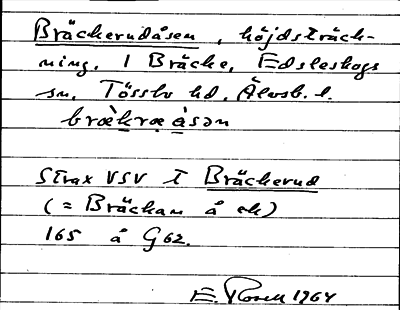 Bräckerudåsen, höjdsträck-
ning, I Bräcke, Edsleskogs
sn, Tössbo hd, Älvsb. l.
bræ̀kræ åsən
Strax VSV I Bräckerud
(= Bräckan å ek)
165 å G62.
E. Rosell 1964